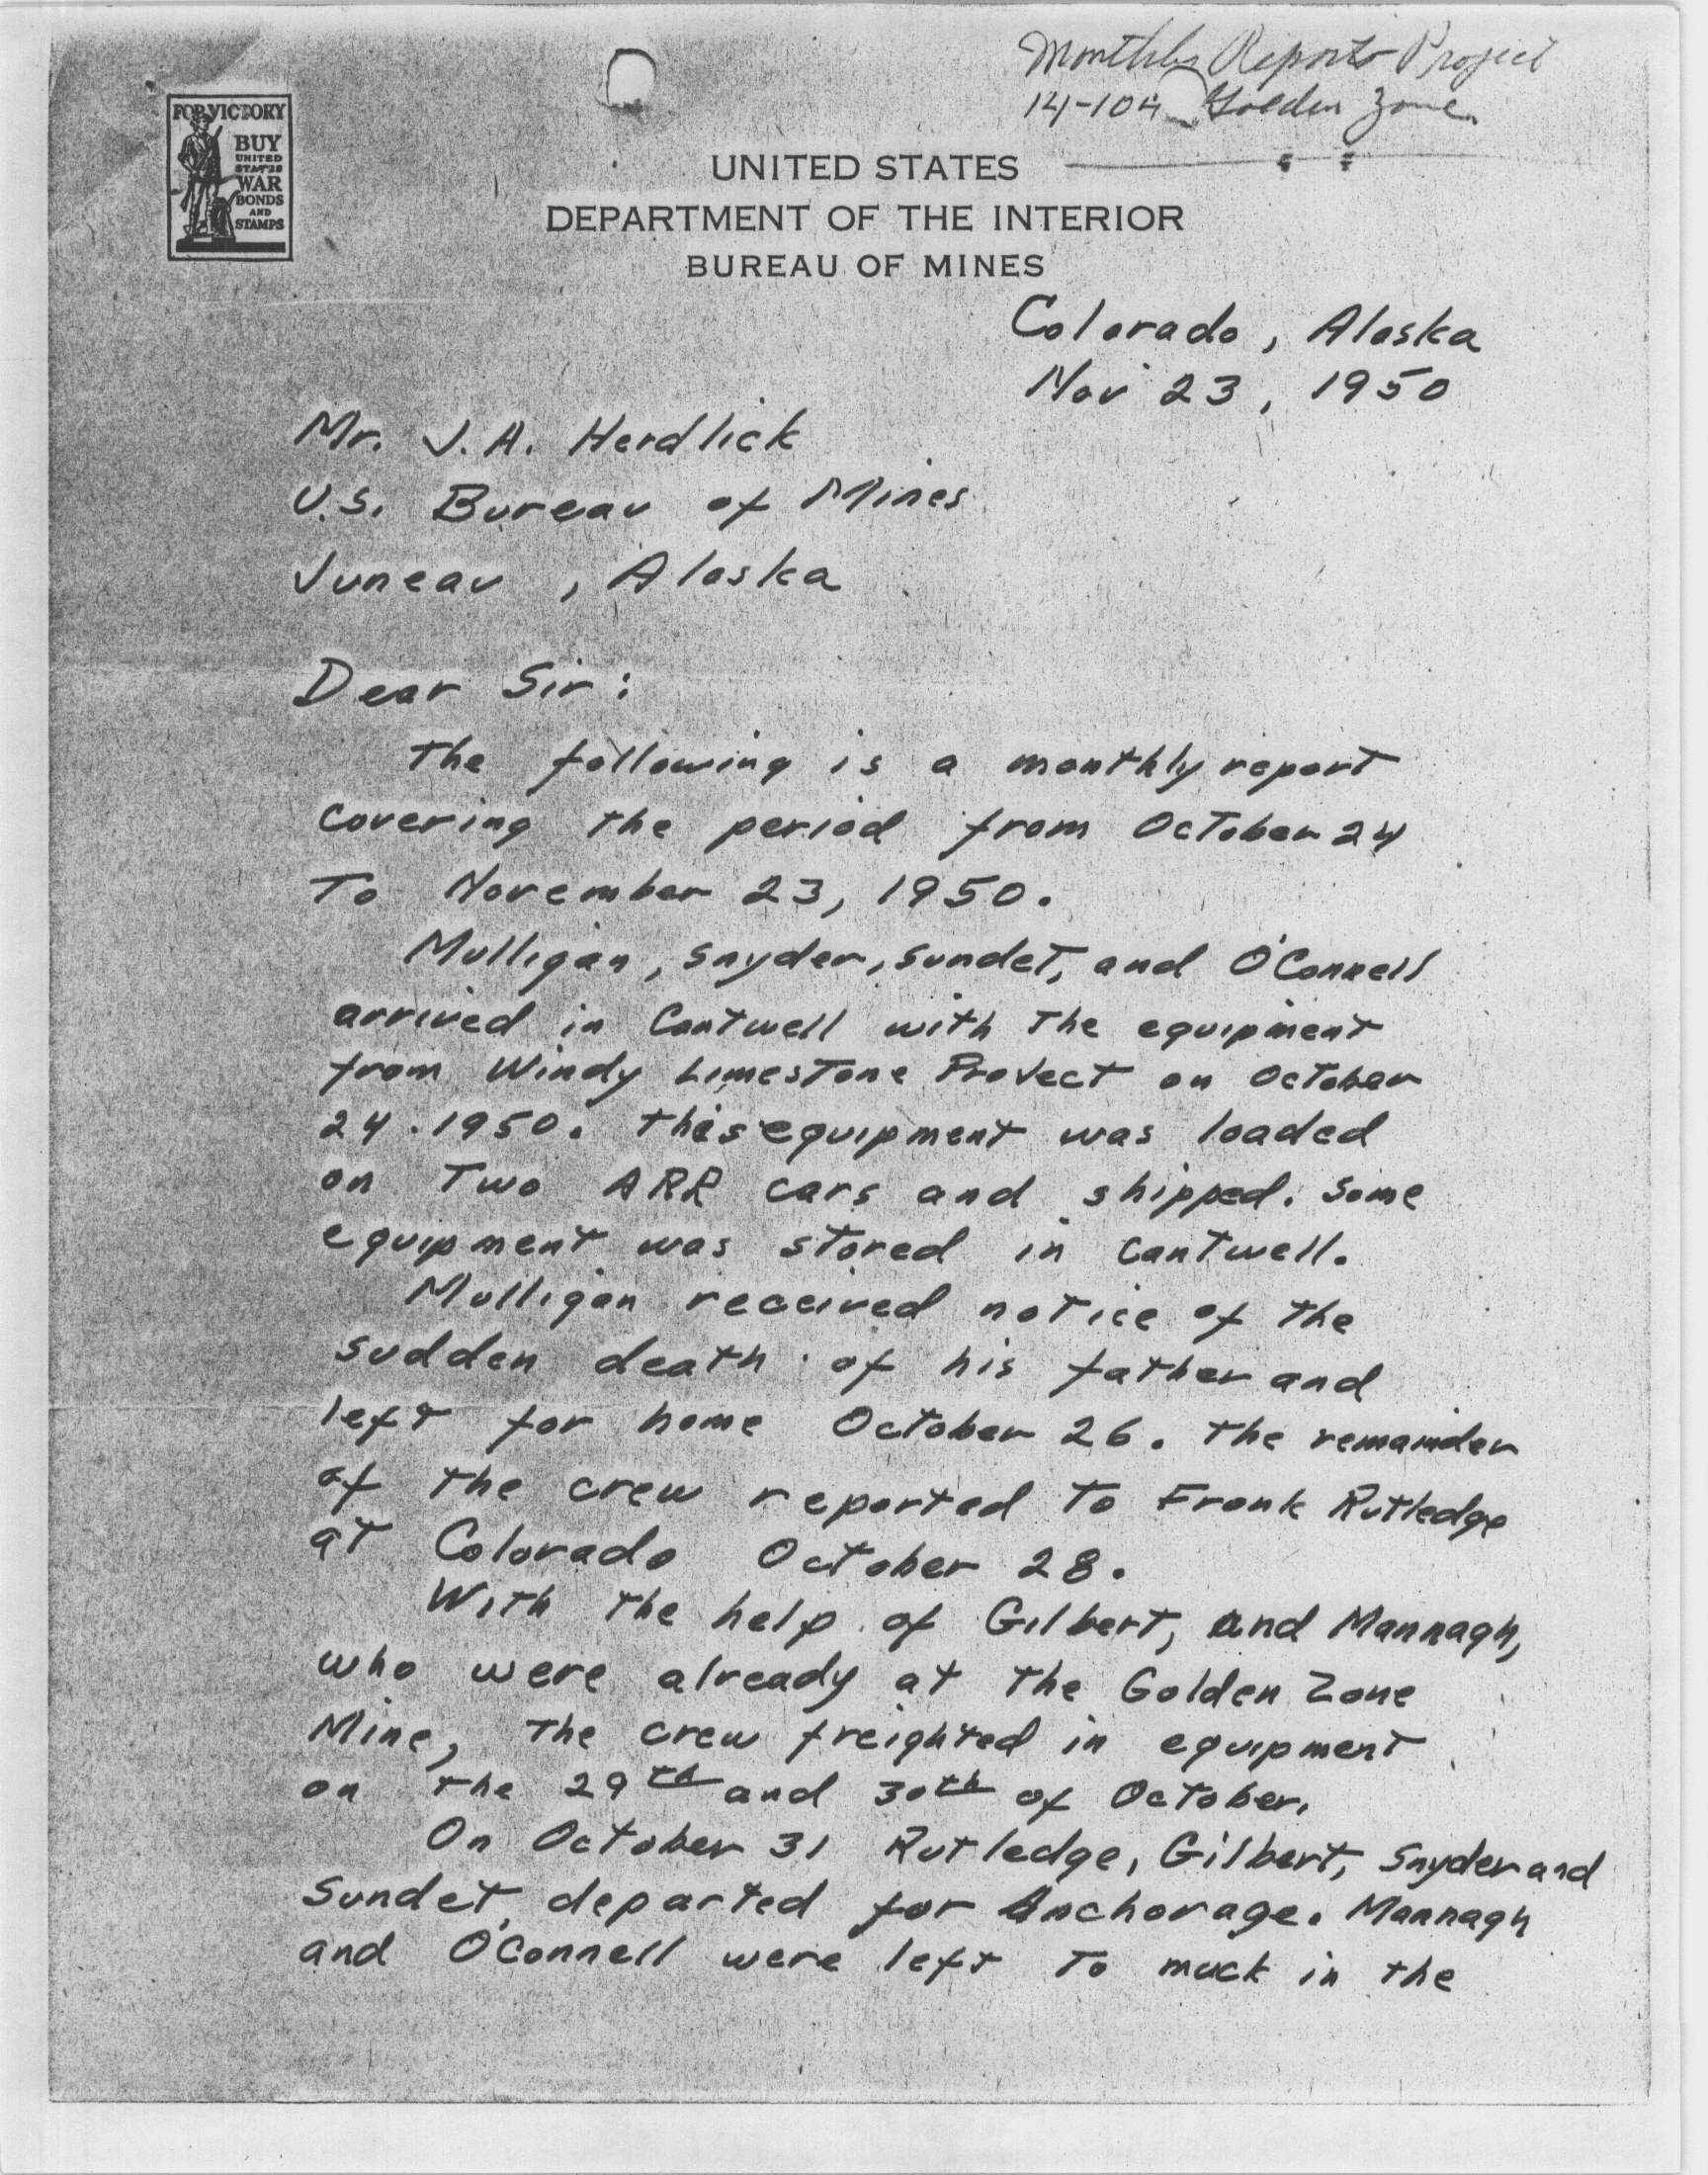 Monthly Reports Project
14-104 Golden Zone
FOR VICTORY
BUY
UNITED
STATES
WAR
BONDS
AND
STAMPS
UNITED STATES
DEPARTMENT OF THE INTERIOR
BUREAU OF MINES
Colorado, Alaska
Nov 23, 1950
Mr. J.A. Herdlick
U.S. Bureau of Mines
Juneau, Alaska
Dear Sir:
The following is a monthly report
covering the period from October 24
To November 23, 1950.
Mulligan, Snyder, Sundet, and O'Connell
arrived in Cantwell with the equipment
from Windy Limestone Proyect on October
24. 1950. This equipment was loaded
on Two ARR cars and shipped. Some
equipment was stored in Cantwell.
Mulligan received notice of the
sudden death of his father and
left for home October 26. The remainder
of the crew reported to Frank Rutledge
at Colorado October 28.
With the help of Gilbert, and Mannagh,
who were already at the Golden Zone
Mine, the crew freighted in equipment
on the 29th and 30th of October.
On October 31 Rutledge, Gilbert, Snyder and
Sundet departed for Anchorage. Mannagh
and O'Connell were left to muck in the